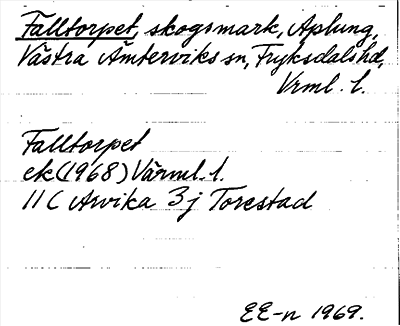 Falltorpet, skogsmark, Aplung,
Västra Ämterviks sn, Fryksdals hd,
Vrml. l.
Falltorpet
ek (1968) Värml. l.
11 C Arvika 3 j Torestad
EE-n 1969.